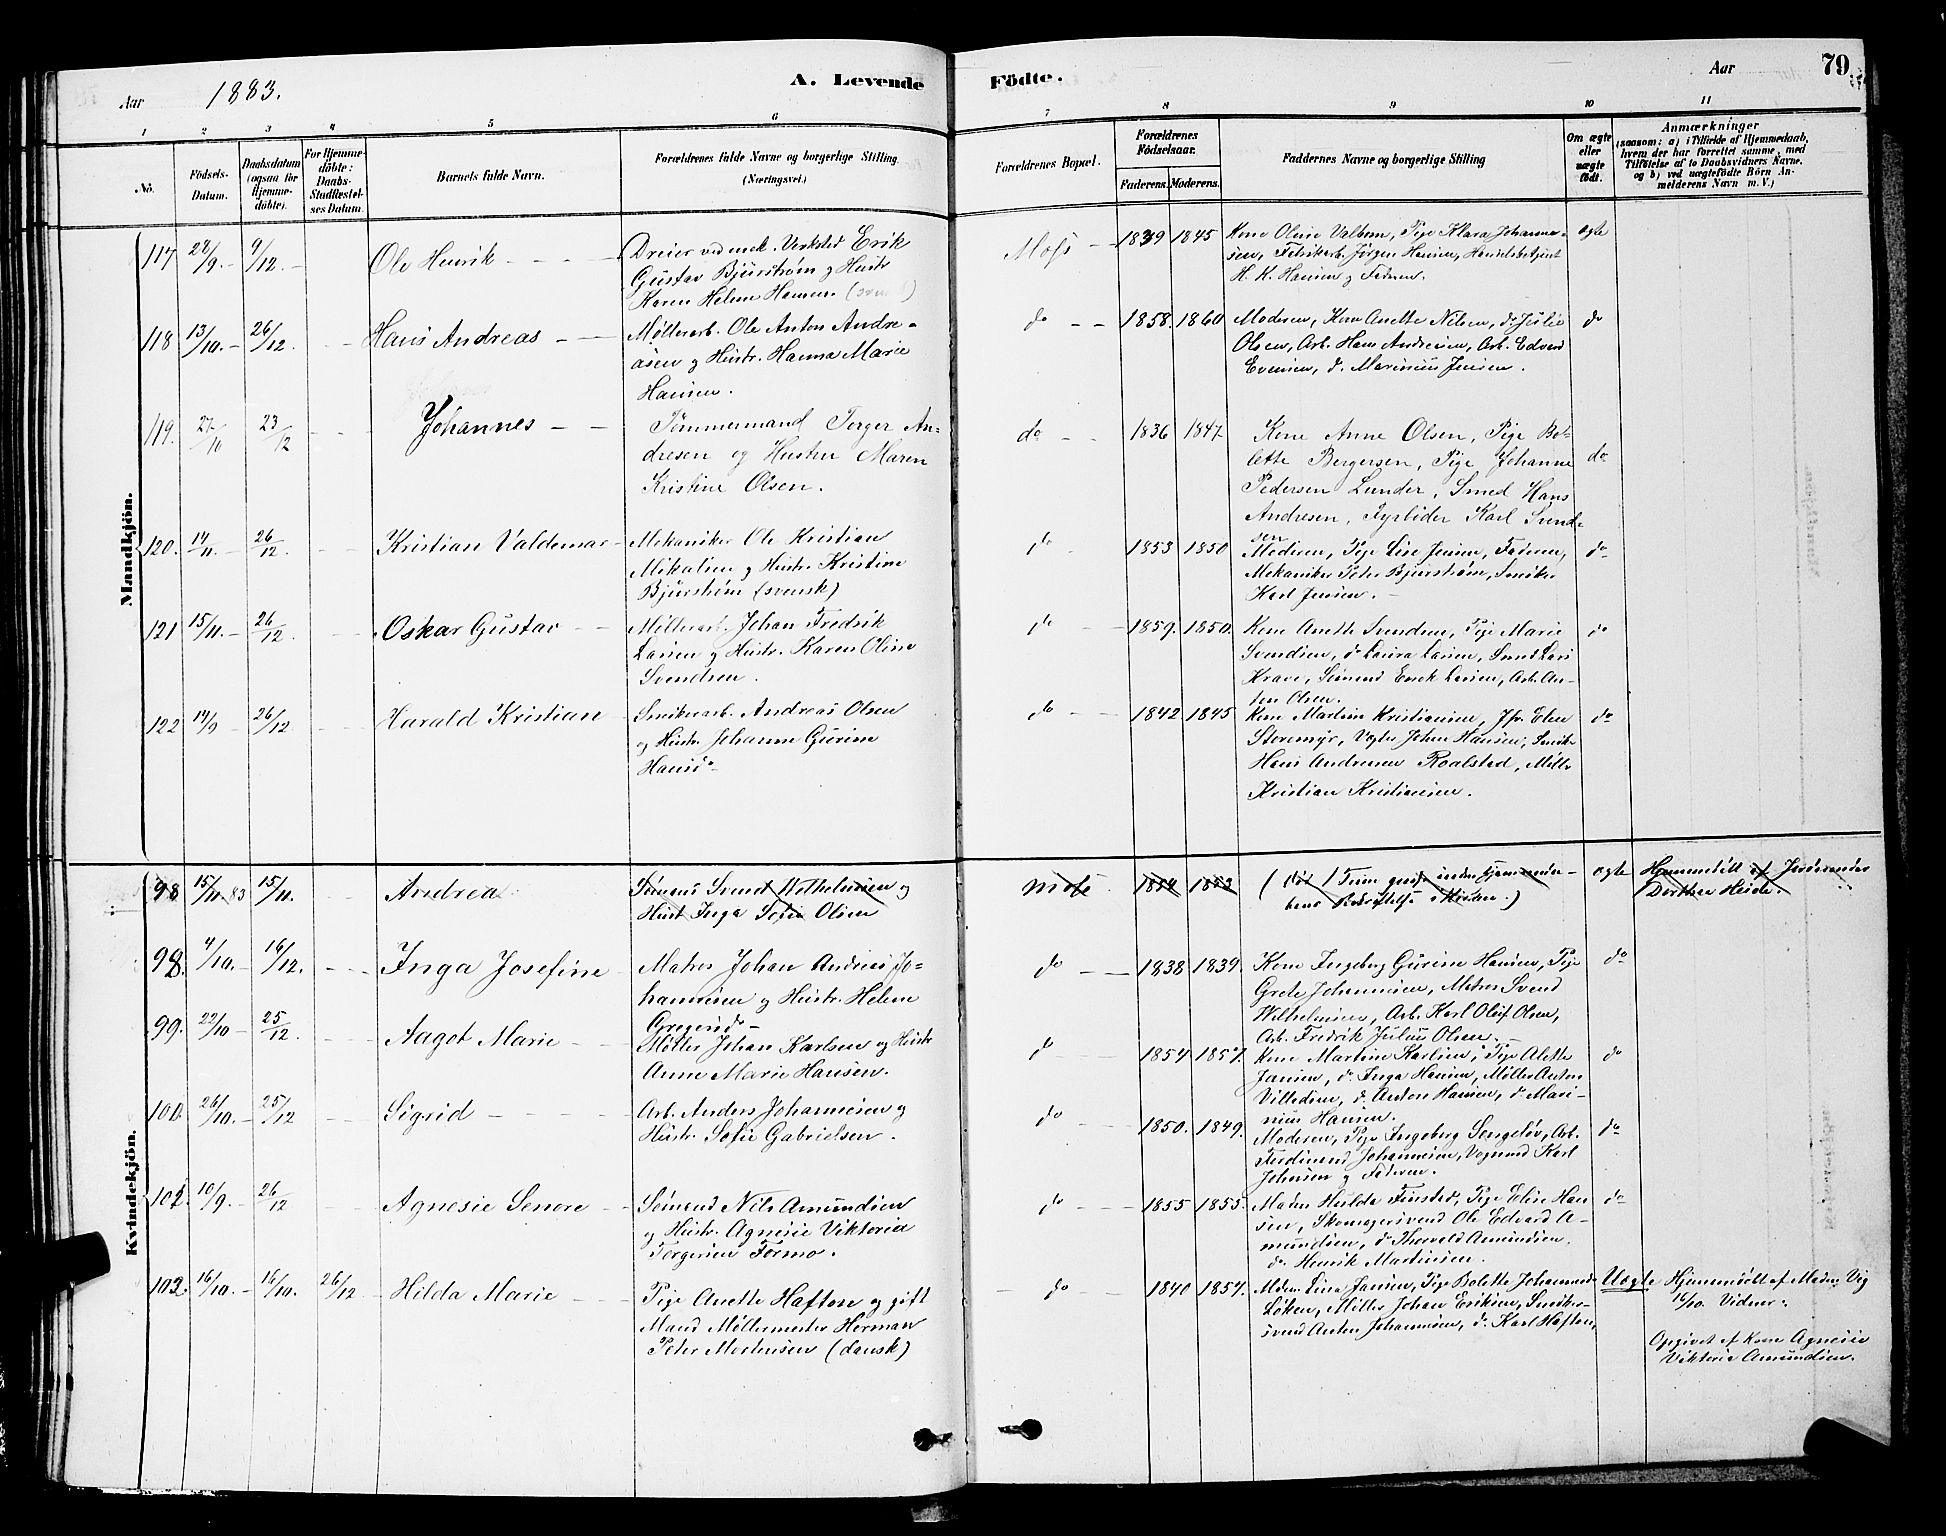 Aar 1883. A. Levende Födte. Aar 79
1 2 3 4 5 6 7 8 9 10 11
No. Födsels-Datum. Daabsdatum (ogsaa för Hjemme-döbte). For Hjemme-döbte: Daabs-Stadfæstel-ses Datum. Barnets fulde Navn. Forældrenes fulde Navne og borgerlige Stilling (Næringsvei.) Forældrenes Bopæl. Forældrenes Födselsaar. Faderens. Moderens. Faddernes Navne og borgerlige Stilling Om ægte eller uægte födt. Anmærkninger
(saasom: a) i Tilfælde af Hjemmedaab,
hvem der har forrettet samme, med
Tilföielse af to Daabsvidners Navne,
og b) ved uægtefödte Börn An-
melderens Navn m. V.)
Mandkjön.
117 28/9. 9/12 Ole Henrik Dreier ved mek. Verksted Erik Moss 1839 1845 Kone Oline Valbom, Pige Klara Johanne- ægte
Gustav Bjürstrøm og Hustr. sen, Fabrikarb. Jörgen Hansen, Handelsbetjent
Karen Helene Hansen. (svensk) H. K. Hansen og Faderen.
118 13/10. 26/12. Hans Andreas Møllerarb. Ole Anton Andre- do 1858. 1860 Moderen, Kone Anette Nilsen, do Julie do
asen og Hustr. Hanna Marie Olsen, Arb. Hans Andresen, Arb. Edvard
Hansen. Evensen, do Marinius Jensen.
119. 27/10 23/12 Johannes Tömmermand Torger An- do 1836 1847 Kone Anne Olsen, Pige Bo- do
dresen og Hustru Maren lette Bergersen, Pige Johanne
Kristine Olsen. Pedersen Lunder, Smed Hans
Andresen, Fyrbøder Karl Svend-
sen
120. 14/11. 26/12. Kristian Valdemar Mekaniker Ole Kristian do 1853 1850 Moderen, Pige Lise Jensen, Faderen, do
Mikalsen og Hustr. Kristine Mekaniker Peter Bjürstrøm, Snedker
Bjürstrøm (svensk) Karl Jensen.
121 15/11. 26/12. Oskar Gustav Møllerarb. Johan Fredrik do 1859. 1850. Kone Anette Svendsen, Pige Marie do
Larsen og Hustr. Karen Oline Svendsen, do Laura Larsen, Smed Lars
Svendsen. Krave, Sömand Larsen, Arb. An-
ton Olsen.
122 14/9 26/12. Harald Kristian Snedkerarb. Andreas Olsen do 1842 1845 Kone Martine Kristiansen, Jfr. Elen do
og Hustr. Johanne Gurine Storemyr, Johan Hansen, Snedker
Hansd. Hans Andresen Roalstad, Møller
Kristian Kristiansen.
Kvindekjön.
98 15/11 83 15/11. Andrea Sömand Svend Wilhelmsen og Moss 1854 1853 ægte Hjemmedöbt af Jordemoder
Hust. Inga Sofie Olsen Dorthea Heide.
98. 4/10. 16/12. Inga Josefine Matros Johan Andreas Jo- do 1838 1839. Kone Ingeborg Gurine Hansen, Pige do
hannesen og Hustr. Helene Grete Johannesen, Matros Svend
Gregersd. Wilhelmsen, Arb. Karl Oluf Olsen,
Arb. Fredrik Julius Olsen.
99. 22/10 25/12. Aagot Marie Møller Johan Karlsen og Hustr. do 1854 1857. Kone Martine Karlsen, Pige Alette do
Anne Marie Hansen. Jansen, do Inga Hansen, Møller Anton
Villedsen, do Anton Hansen, do Mari-
nius Hansen.
100. 26/10. 25/12 Sigrid Arb. Anders Johannesen og do 1850. 1849. Moderen, Pige Ingeborg Sengeløv, Arb. do
Hustr. Sofie Gabrielsen. Ferdinand Johannesen, Vognmd Karl
Johnsen og Faderen.
101. 10/9. 26/12 Agnesie Senore Sömand Nils Amundsen do 1855 1855. Maden Hulda Finstad, Pige Elise Han- do
og Hustr. Agnesie Viktoria sen, Skomagersvend Ole Edvard A-
Torgersen Formo. mundsen, do Thorvald Amundsen,
do Henrik Martinsen.
102. 16/10. 16/10. 26/12 Hilda Marie Pige Anette Haftore og gift do 1840 1857. Maden Lina Jansen, Pige Bolette Johannesd. Uægte Hjemmedöbt af Maden Vig
Mand Møllermester Herman Løken, Møller Johan Eriksen, Snedker- 16/10. Vidner:
Peter Mortensen (dansk) svend Anton Johannesen, do Karl Haftore, Opgivet af Kone Agnesie
Viktoria Amundsen.